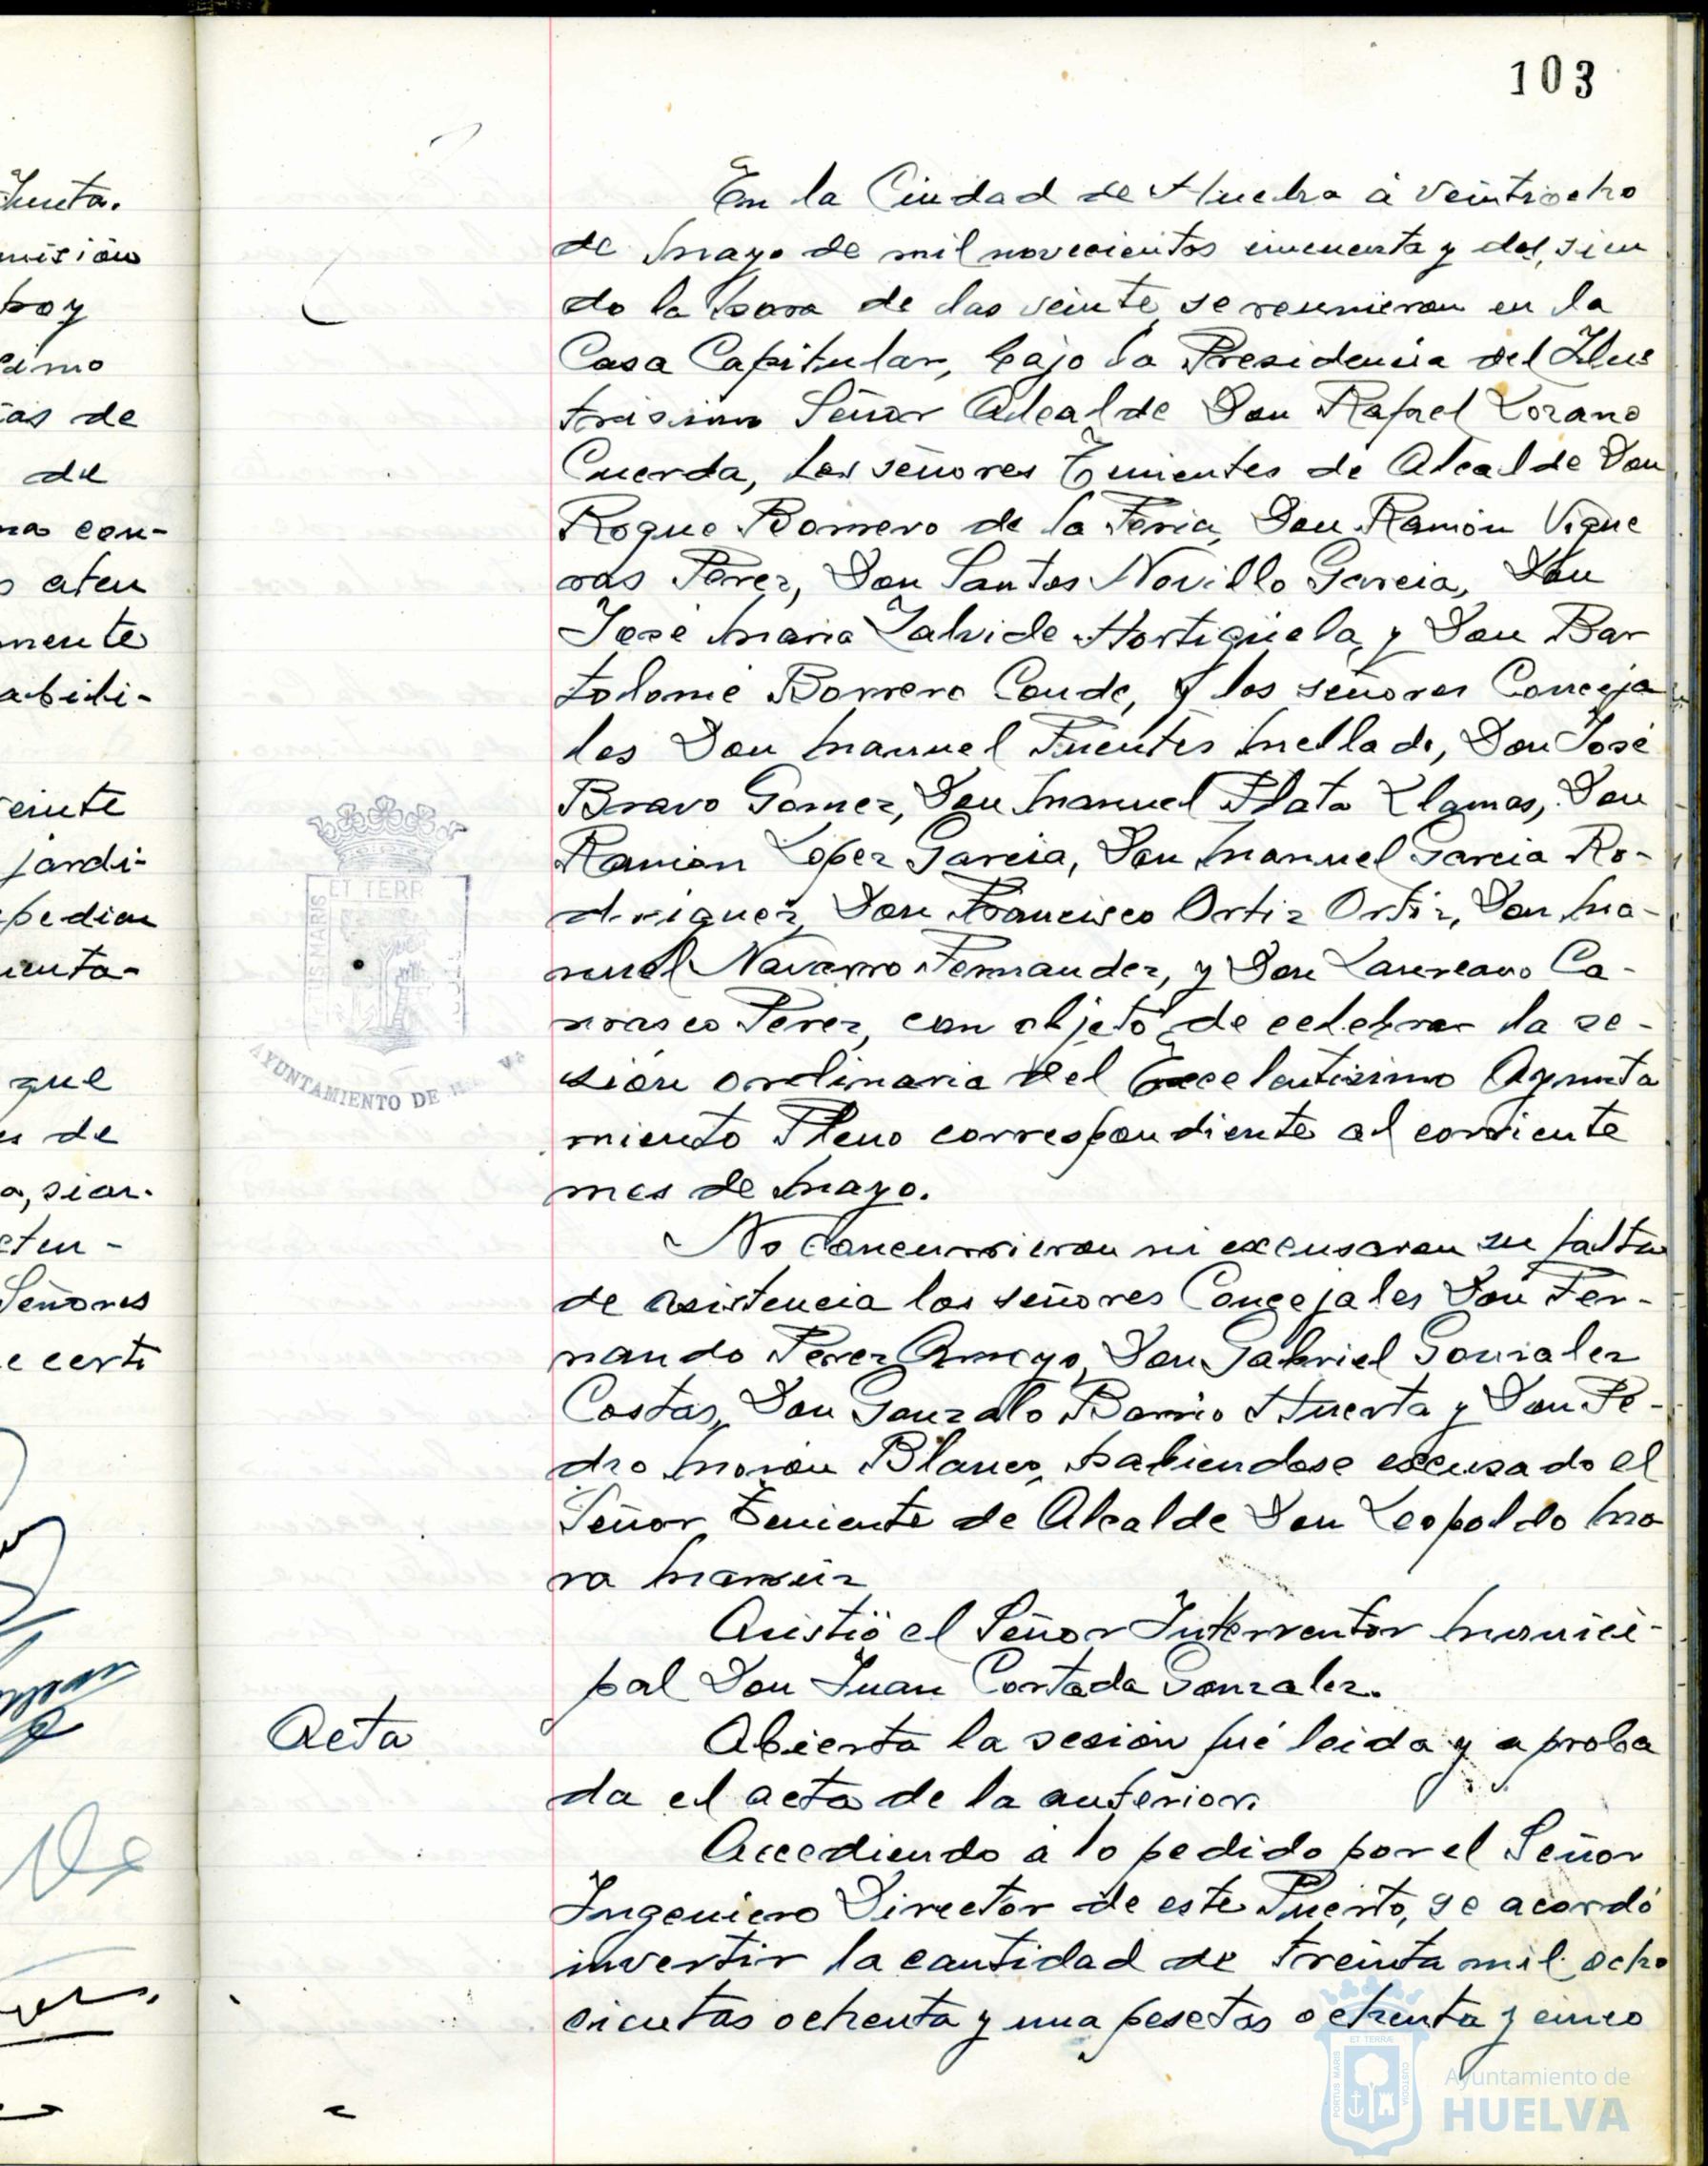 103
En la Ciudad de Huelva á veintiocho
de Mayo de mil novecientos cincuenta y dos, sien
do la hora de las veinte, se reunieron en la
Casa Capitular, bajo la Presidencia del Ilus
trísimo Señor Alcalde Don Rafael Lozano
Cuerda, los señores Tenientes de Alcalde Don
Roque Borrero de la Feria, Don Ramón Vigue
ras Perez, Don Santos Novillo Garcia, Don
José Maria Zalvide Hortigüela, y Don Bar
tolomé Borrero Conde, y los señores Conceja
les Don Manuel Fuentes Mellado, Don José
Bravo Gomez, Don Manuel Plata Llamas, Don
Ramón Lopez Garcia, Don Manuel Garcia Ro-
driguez, Don Francisco Ortiz Ortiz, Don Ma-
nuel Navarro Fernandez, y Don Laureano Ca-
rrasco Perez, con objeto de celebrar la se-
sión ordinaria del Excelentisimo Ayunta
miento Pleno correspondiente al corriente
mes de Mayo.
No concurrieron ni excusaron su falta
de asistencia los señores Concejales Don Fer-
nando Perez Arroyo, Don Gabriel Gonzalez
Costas, Don Gonzalo Barrio Huerta y Don Pe-
dro Morón Blanco, habiendose excusado el
Señor Teniente de Alcalde Don Leopoldo Mo
ra
Asistió el Señor Interventor Munici-
pal Don Juan Cortada Gonzalez.
Acta
Abierta la sesión fué leida y aproba
da el acta de la anterior.
Accediendo á lo pedido por el Señor
Ingeniero Director de este Puerto, se acordó
invertir la cantidad de treinta mil ocho
cientas ochenta y una pesetas ochenta y cinco
ET TERR
AYUNTAMIENTO DE
Ayuntamiento de
HUELVA
Junta.
misión
hoy
as de
de
na con-
aten
mente
abili-
veinte
jardi-
pedien
que
s de
Señores
e certi